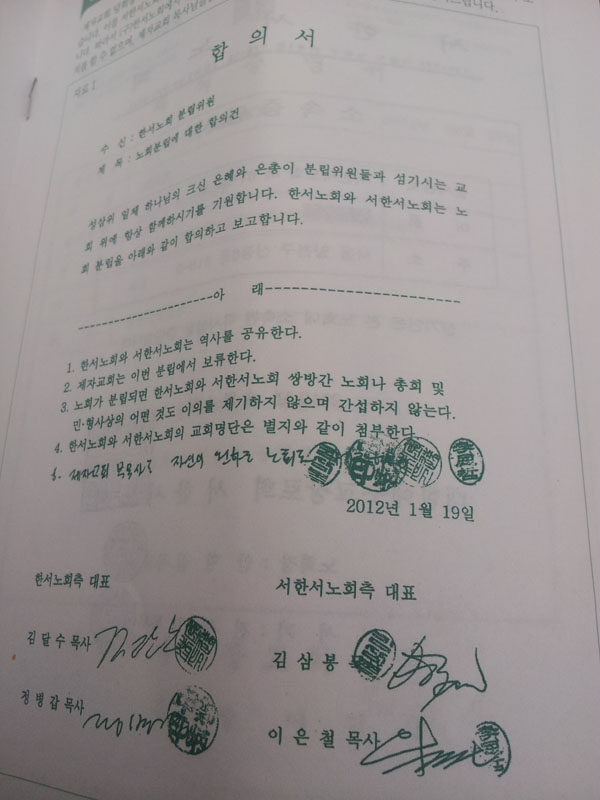 합 의 서
자료 1
수 신 : 한서노회 분립위원
제 목 : 노회분립에 대한 합의건
성삼위 일체 하나님의 크신 은혜와 은총이 분립위원들과 섬기시는 교
회 위에 항상 함께하시기를 기원합니다. 한서노회와 서한서노회는 노
회 분립을 아래와 같이 합의하고 보고합니다.
----------------------아 래------------------------
1. 한서노회와 서한서노회는 역사를 공유한다.
2. 제자교회는 이번 분립에서 보류한다.
3. 노회가 분립되면 한서노회와 서한서노회 쌍방간 노회나 총회 및
민·형사상의 어떤 것도 이의를 제기하지 않으며 간섭하지 않는다.
4. 한서노회와 서한서노회의 교회명단은 별지와 같이 첨부한다.
제자교회 자신의 노회로
2012년 1월 19일
한서노회측 대표
서한서노회측 대표
김 달 수 목사
김 삼 봉
정 병 갑 목사
이 은 철 목사